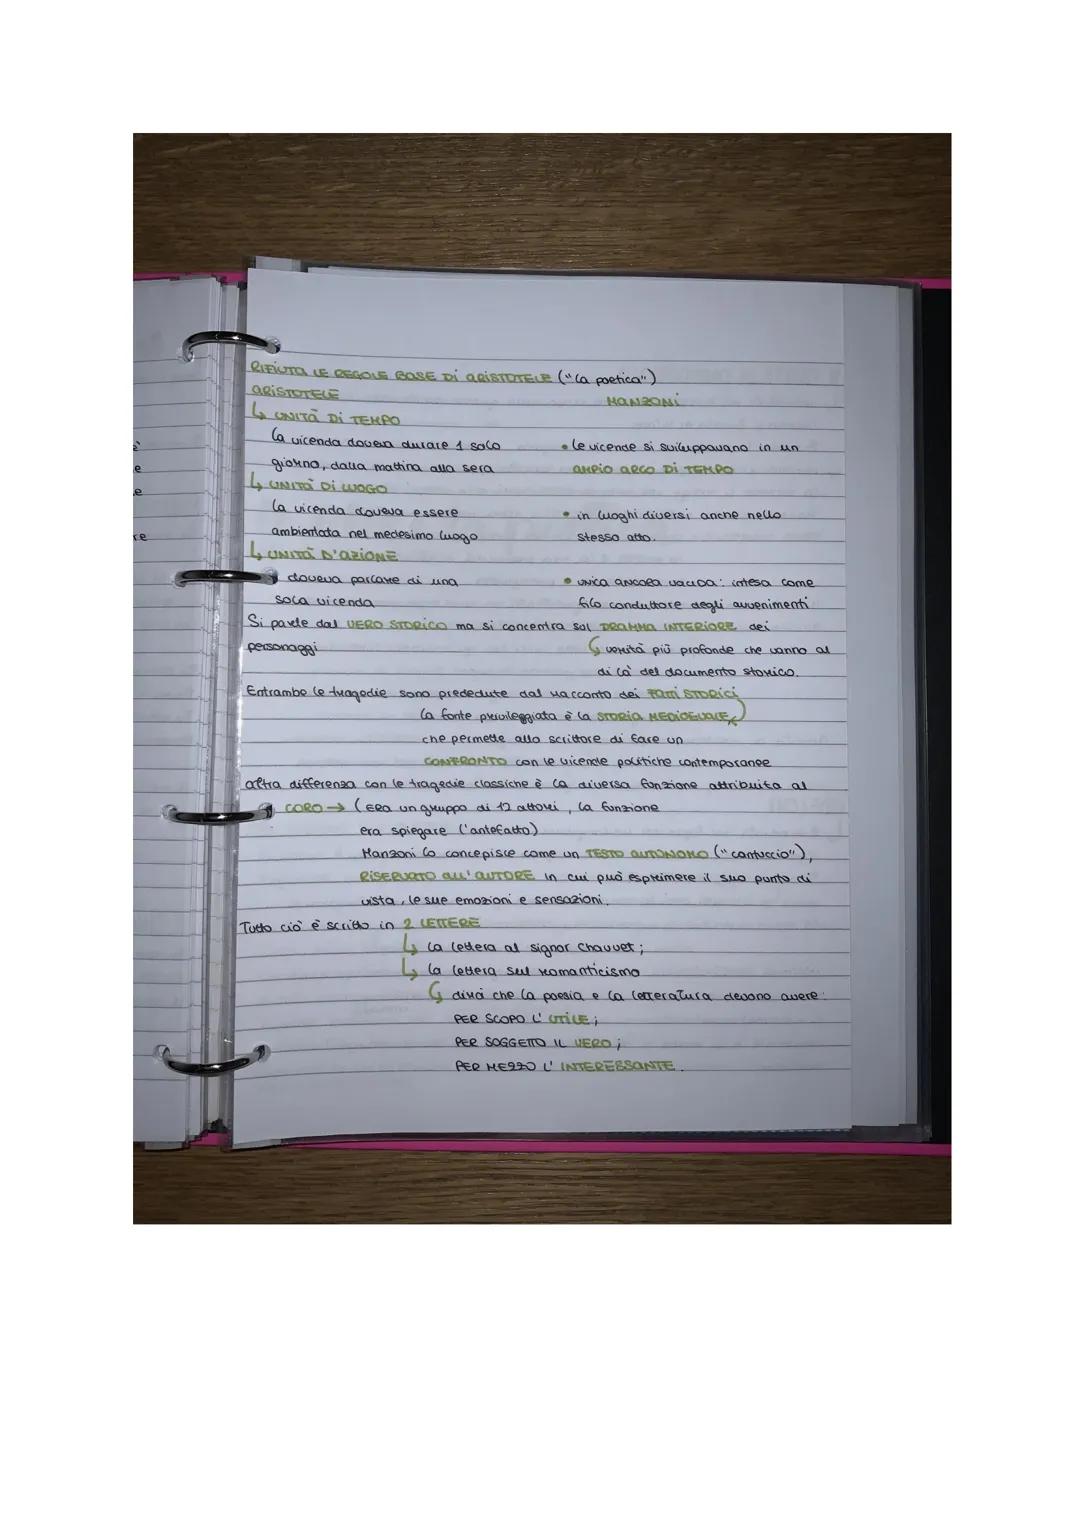 RIFIUTA LE REGOLE BASE DI ARISTOTELE ("la poetica")
ARISTOTELE
MANZONI
↳ UNITÀ DI TEMPO
la vicenda doveva durare 1 solo
giorno, dalla mattina alla sera
• le vicende si sviluppavano in un
AMPIO ARCO DI TEMPO
↳ UNITÀ DI LUOGO
la vicenda doveva essere
ambientata nel medesimo luogo
• in luoghi diversi anche nello
stesso atto.
↳ UNITÀ D'AZIONE
doveva parlare di una
sola vicenda
• UNICA ANCORA VALIDA: intesa come
filo conduttore degli avvenimenti
Si parte dal VERO STORICO ma si concentra sul DRAMMA INTERIORE dei
personaggi
↳ verità più profonde che vanno al
di là del documento storico.
Entrambe le tragedie sono precedute dal racconto dei FATTI STORICI
la fonte privileggiata è la STORIA MEDIOEVALE,
che permette allo scrittore di fare un
CONFRONTO con le vicende politiche contemporanee
altra differenza con le tragedie classiche è la diversa funzione attribuita al
CORO → (ERA un gruppo di 12 attori, la funzione
era spiegare l'antefatto)
Manzoni lo concepisce come un TESTO AUTONOMO ("cantuccio"),
RISERVATO ALL'AUTORE in cui può esprimere il suo punto di
vista, le sue emozioni e sensazioni.
Tutto ciò è scritto in 2 LETTERE
↳ la lettera al signor Chauvet;
↳ la lettera sul romanticismo
↳ dirà che la poesia e la letteratura devono avere:
PER SCOPO L'UTILE;
PER SOGGETTO IL VERO;
PER MEZZO L'INTERESSANTE.